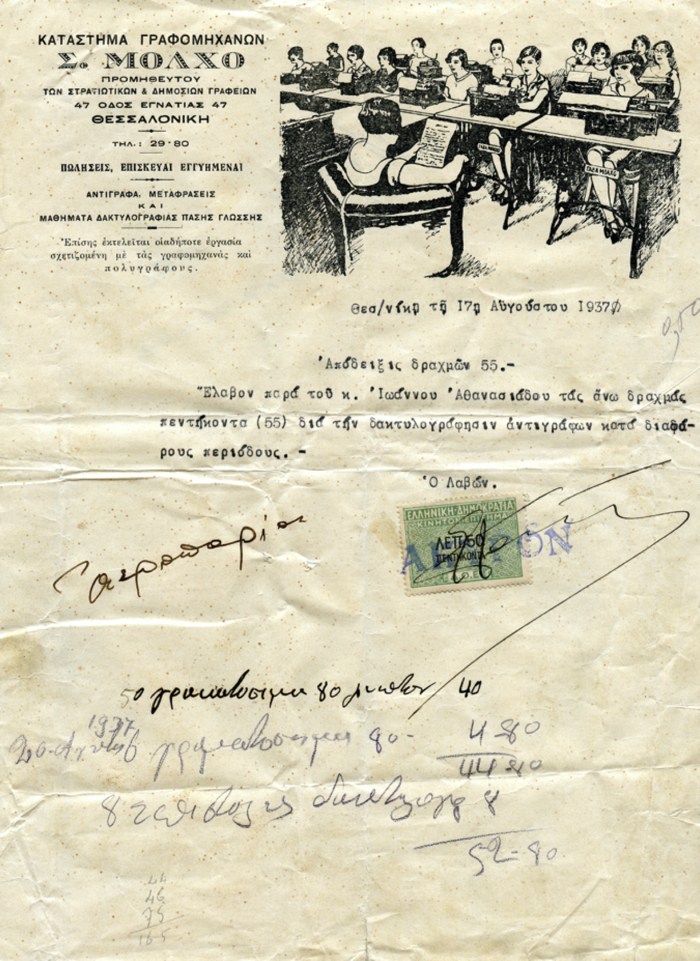 ΚΑΤΑΣΤΗΜΑ ΓΡΑΦΟΜΗΧΑΝΩΝ
Σ. ΜΟΛΧΟ
ΠΡΟΜΗΘΕΥΤΟΥ
ΤΩΝ ΣΤΡΑΤΙΩΤΙΚΩΝ & ΔΗΜΟΣΙΩΝ ΓΡΑΦΕΙΩΝ
47 ΟΔΟΣ ΕΓΝΑΤΙΑΣ 47
ΘΕΣΣΑΛΟΝΙΚΗ
ΤΗΛ.: 29-80
ΠΩΛΗΣΕΙΣ, ΕΠΙΣΚΕΥΑΙ ΕΓΓΥΗΜΕΝΑΙ
ΑΝΤΙΓΡΑΦΑ, ΜΕΤΑΦΡΑΣΕΙΣ
ΚΑΙ
ΜΑΘΗΜΑΤΑ ΔΑΚΤΥΛΟΓΡΑΦΙΑΣ ΠΑΣΗΣ ΓΛΩΣΣΗΣ
Ἐπίσης ἐκτελεῖται οἱαδήποτε ἐργασία
σχετιζομένη μὲ τὰς γραφομηχανὰς καὶ
πολυγράφους.
Θεσ/νίκη τῇ 17η Αὐγούστου 1937
Ἀπόδειξις δραχμῶν 55.-
Ἔλαβον παρά τοῦ κ. Ἰωάννου Ἀθανασιάδου τάς ἄνω δραχμάς
πεντήκοντα (55) διά τήν δακτυλογράφησιν ἀντιγράφων κατά διαφό-
ρους περιόδους. -
Ὁ Λαβών.
ΕΛΛΗΝΙΚΗ ΔΗΜΟΚΡΑΤΙΑ
ΚΙΝΗΤΟΝ ΕΠΙΣΗΜΑ
ΛΕΠ. 50
ΠΕΝΤΗΚΟΝΤΑ
50 γραματοσημα 80 λεπτον 40
1937
γραματοσημα 80- 4-80
44-80
8 8
52-80